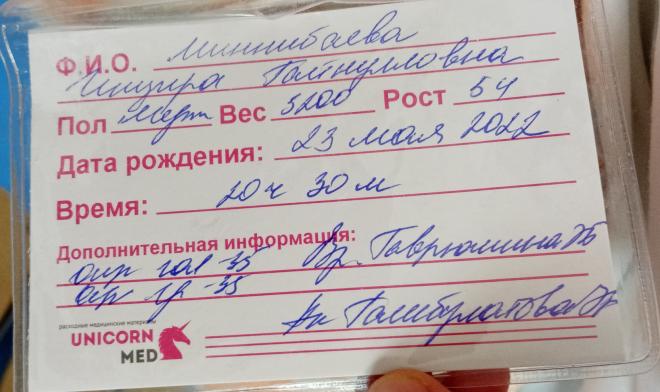 Ф.И.О. Миннибаева
Гатнулловна
Пол Вес 5200 Рост 54
Дата рождения: 23 мая 2022
Время: 20ч 30м
Дополнительная информация:
окр гол -35 Вр. Гаврюшина
окр гр -35
расходные медицинские материалы
UNICORN
MED